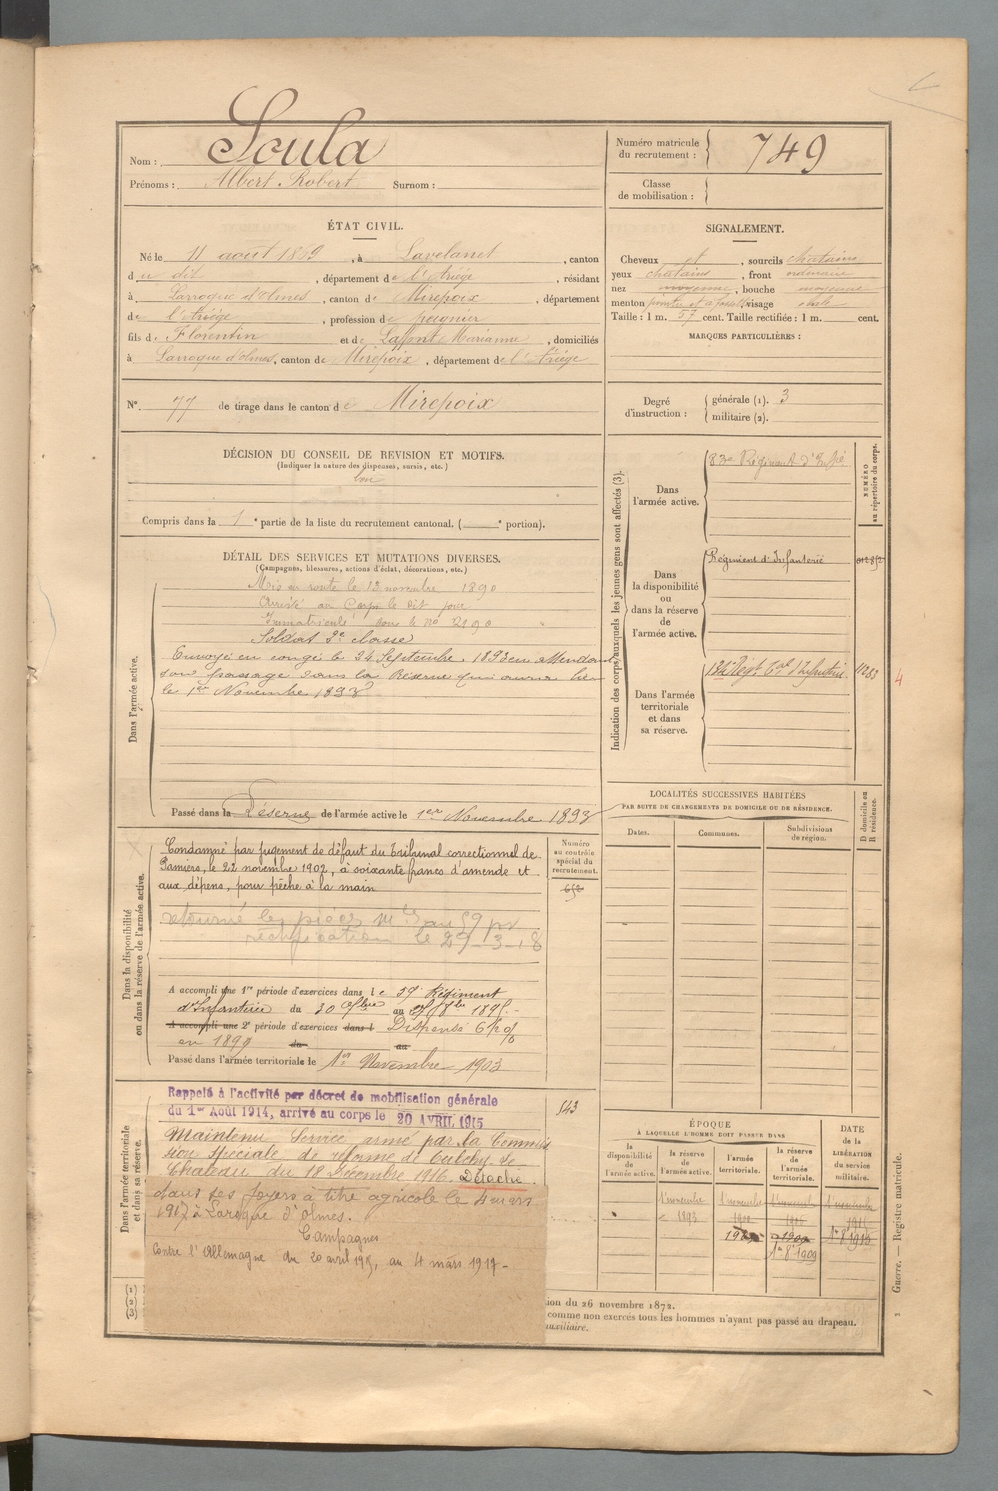 Nom : Soula
Prénoms : Albert Robert Surnom :
Numéro matricule du recrutement : 749
Classe de mobilisation :
ÉTAT CIVIL.
Né le 11 août 1869, à Lavelanet, canton
du dit, département de l'Ariège, résidant
à Larroque d'olmes, canton de Mirepoix, département
de l'Ariège, profession de peignier
fils de Florentin et de Laffont Marianne, domiciliés
à Larroque d'olmes, canton de Mirepoix, département de l'Ariège
N° 77 de tirage dans le canton de Mirepoix
SIGNALEMENT.
Cheveux et, sourcils chatains
yeux chatains, front ordinaire
nez moyenne, bouche moyenne
menton pointu et à fossette visage ovale
Taille : 1 m. 57 cent. Taille rectifiée : 1 m. cent.
MARQUES PARTICULIÈRES :
Degré d'instruction : générale (1). 3
militaire (2).
DÉCISION DU CONSEIL DE REVISION ET MOTIFS.
(Indiquer la nature des dispenses, sursis, etc.)
Bon
Compris dans la 1e partie de la liste du recrutement cantonal. ( e portion).
DÉTAIL DES SERVICES ET MUTATIONS DIVERSES.
(Campagnes, blessures, actions d'éclat, décorations, etc.)
Dans l'armée active.
Mis en route le 12 novembre 1890
Arrivé au Corps le dit jour
Immatriculé sous le no 2190
Soldat 2e classe
Envoyé en congé le 24 Septembre 1893 en attendant
son passage dans la Réserve qui aura lieu
le 1er Novembre 1893
Passé dans la Réserve de l'armée active le 1er Novembre 1893
Indication des corps auxquels les jeunes gens sont affectés (3).
NUMÉRO au répertoire du corps.
Dans l'armée active.
83e Régiment d'Infie
Dans la disponibilité ou dans la réserve de l'armée active.
Régiment d'Infanterie
Dans l'armée territoriale et dans sa réserve.
Regt Tal d'Infanterie
4
LOCALITÉS SUCCESSIVES HABITÉES
PAR SUITE DE CHANGEMENTS DE DOMICILE OU DE RÉSIDENCE.
Dates. Communes. Subdivisions de région. D domicile ou R résidence.
Dans la disponibilité ou dans la réserve de l'armée active.
Numéro au contrôle spécial du recrutement.
Condamné par jugement de défaut du Tribunal correctionnel de
Pamiers, le 22 novembre 1902, à soixante francs d'amende et
aux dépens, pour pêche à la main
retourné les pièces mles au 59 pr
rectification le 29-3-18
A accompli une 1re période d'exercices dans le 59e Régiment
d'Infanterie du 30 7bre au 27 8bre 1895
A accompli une 2e période d'exercices dans l Dispensé 6 p. %
en 1899 du au
Passé dans l'armée territoriale le 1er Novembre 1903
Dans l'armée territoriale et dans sa réserve.
Rappelé à l'activité par décret de mobilisation générale
du 1er Août 1914, arrivé au corps le 20 AVRIL 1915
543
Maintenu Service armé par la Commis
sion spéciale de réforme de
Château du 18 Décembre 1916. Détaché
dans ses foyers à titre agricole le 4 mars
1917 à Laroque d'olmes.
Campagnes
Contre l'Allemagne du 20 avril 1915, au 4 mars 1917 -
ÉPOQUE
À LAQUELLE L'HOMME DOIT PASSER DANS
la disponibilité de l'armée active. la réserve de l'armée active. l'armée territoriale. la réserve de l'armée territoriale. DATE de la LIBÉRATION du service militaire.
1 novembre 1893
(1)
(2)
(3)
ion du 26 novembre 1872.
comme non exercés tous les hommes n'ayant pas passé au drapeau.
auxiliaire.
1 Guerre. — Registre matricule.